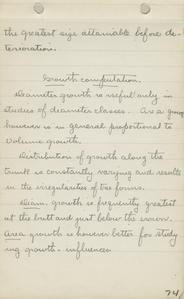 the greatest size attainable before de-
terioration.
Growth computation.
Diameter growth is useful only in
studies of diameter classes. Area growth
however is in general proportional to
volume growth.
Distribution of growth along the
trunk is constantly varying and results
in the irregularities of tree forms.
Diam. growth is frequently greatest
at the butt and just below the crown.
Area growth is however better for study
ing growth-influences
74